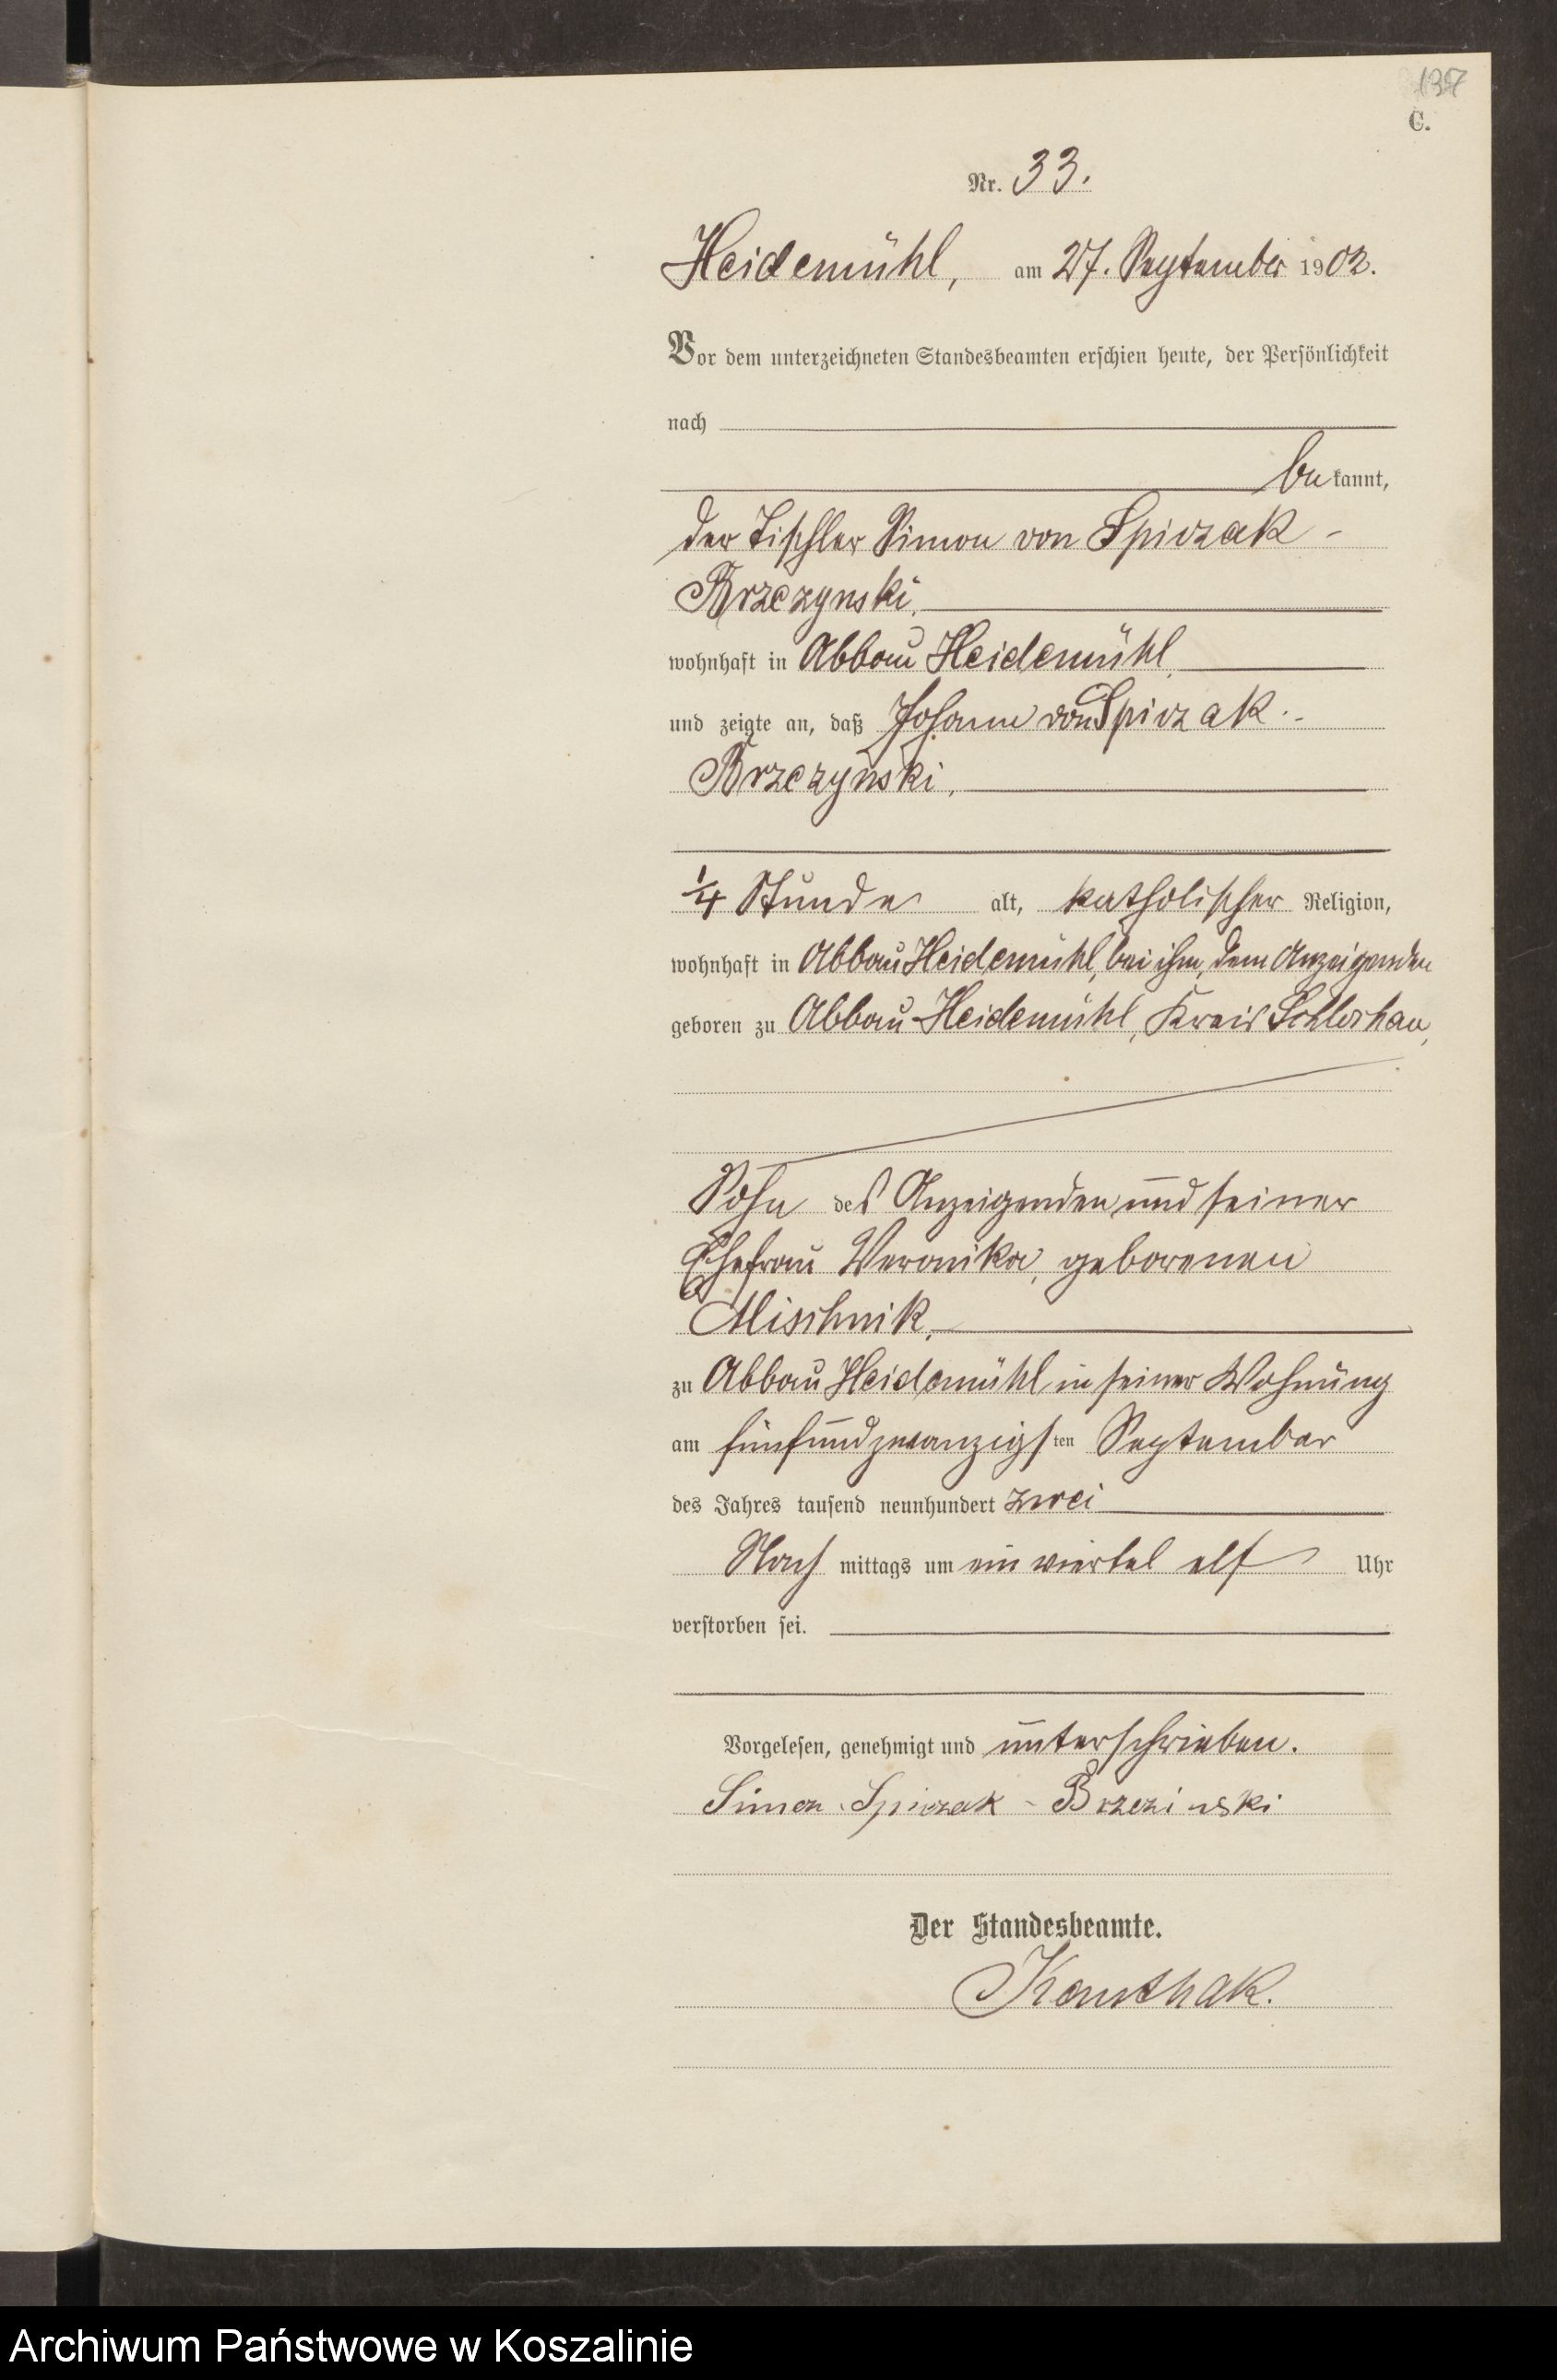 137
C.
Nr. 33.
Heidemühl, am 27. September 1902.
Vor dem unterzeichneten Standesbeamten erschien heute, der Persönlichkeit
nach
bekannt,
der Tischler Simon von Spiczak-
Brzezynski,
wohnhaft in Abbau Heidemühl,
und zeigte an, daß Johann von Spiczak-
Brzezynski,
1/4 Stunde alt, katholischer Religion,
wohnhaft in Abbau Heidemühl, bei ihm, dem Anzeigenden
geboren zu Abbau Heidemühl, Kreis Schlochau,
Sohn des Anzeigenden und seiner
Ehefrau Veronika, geborenen
Mischnik,
zu Abbau Heidemühl, in seiner Wohnung
am fünfundzwanzigsten September
des Jahres tausend neunhundert zwei
Nachmittags um ein viertel elf Uhr
verstorben sei.
Vorgelesen, genehmigt und unterschrieben.
Simon Spiczak-Brzezinski
Der Standesbeamte.
Kanthak.
Archiwum Państwowe w Koszalinie